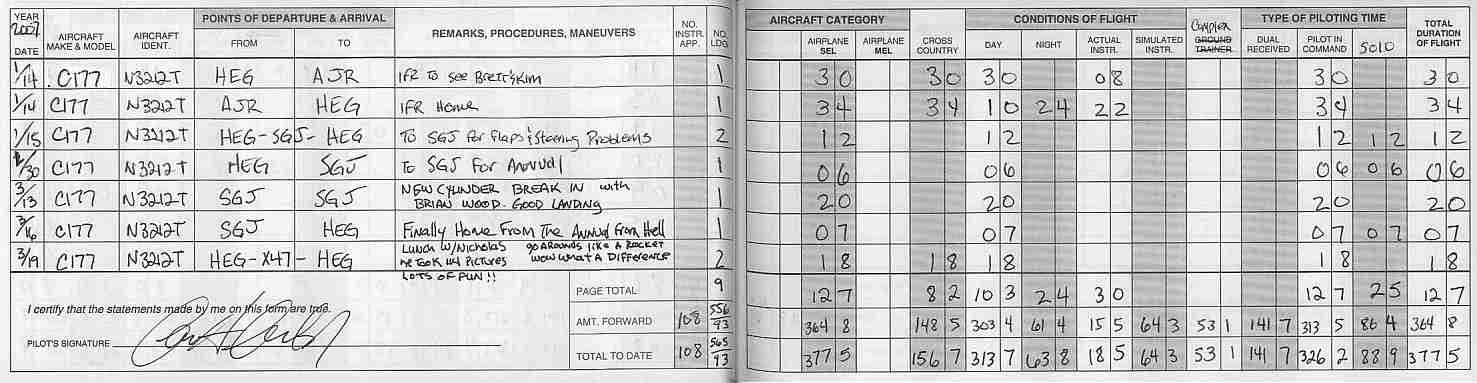 YEAR 2007 DATE AIRCRAFT MAKE & MODEL AIRCRAFT IDENT. POINTS OF DEPARTURE & ARRIVAL FROM TO REMARKS, PROCEDURES, MANEUVERS NO. INSTR. APP. NO. LDG. AIRCRAFT CATEGORY AIRPLANE SEL AIRPLANE MEL CROSS COUNTRY CONDITIONS OF FLIGHT DAY NIGHT ACTUAL INSTR. SIMULATED INSTR. Complex GROUND TRAINER TYPE OF PILOTING TIME DUAL RECEIVED PILOT IN COMMAND SOLO TOTAL DURATION OF FLIGHT
1/14 C177 N3212T HEG AJR IFR To see Brett & Kim 1 3 0 3 0 3 0 0 8 3 0 3 0
1/14 C177 N3212T AJR HEG IFR Home 1 3 4 3 4 1 0 2 4 2 2 3 4 3 4
1/15 C177 N3212T HEG-SGJ-HEG To SGJ for flaps & Problems 2 1 2 1 2 1 2 1 2 1 2
/30 C177 N3212T HEG SGJ To SGJ For Annual 1 0 6 0 6 0 6 0 6 0 6
3/13 C177 N3212T SGJ SGJ NEW CYLINDER BREAK IN with BRIAN WOOD. GOOD LANDING 1 2 0 2 0 2 0 2 0
3/16 C177 N3212T SGJ HEG Finally Home From The Annual From Hell 1 0 7 0 7 0 7 0 7 0 7
3/19 C177 N3212T HEG-X47-HEG Lunch w/Nicholas go AROUNDS like A ROCKET He Took 114 Pictures wow what A DIFFERENCE LOTS OF FUN!! 2 1 8 1 8 1 8 1 8 1 8
I certify that the statements made by me on this form are true.
PILOT'S SIGNATURE
PAGE TOTAL 9 12 7 8 2 10 3 2 4 3 0 12 7 2 5 12 7
AMT. FORWARD 108 556/93 364 8 148 5 303 4 61 4 15 5 64 3 53 1 141 7 313 5 86 4 364 8
TOTAL TO DATE 108 565/93 377 5 156 7 313 7 63 8 18 5 64 3 53 1 141 7 326 2 88 9 377 5